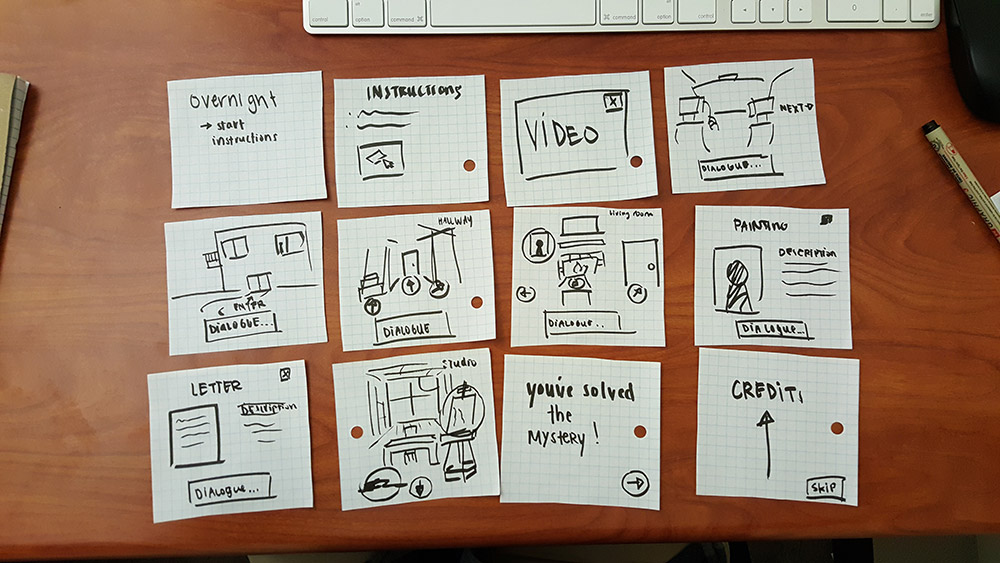 control
option
command
command
option
control
0
.
enter
overnight
→ start
instructions
INSTRUCTIONS
VIDEO
X
NEXT→
DIALOGUE...
ENTER
DIALOGUE...
HALLWAY
DIALOGUE
living room
DIALOGUE...
PAINTING
DESCRIPTION
DIALOGUE...
LETTER
X
DESCRIPTION
DIALOGUE...
STUDIO
you've solved
the
MYSTERY!
CREDITS
SKIP